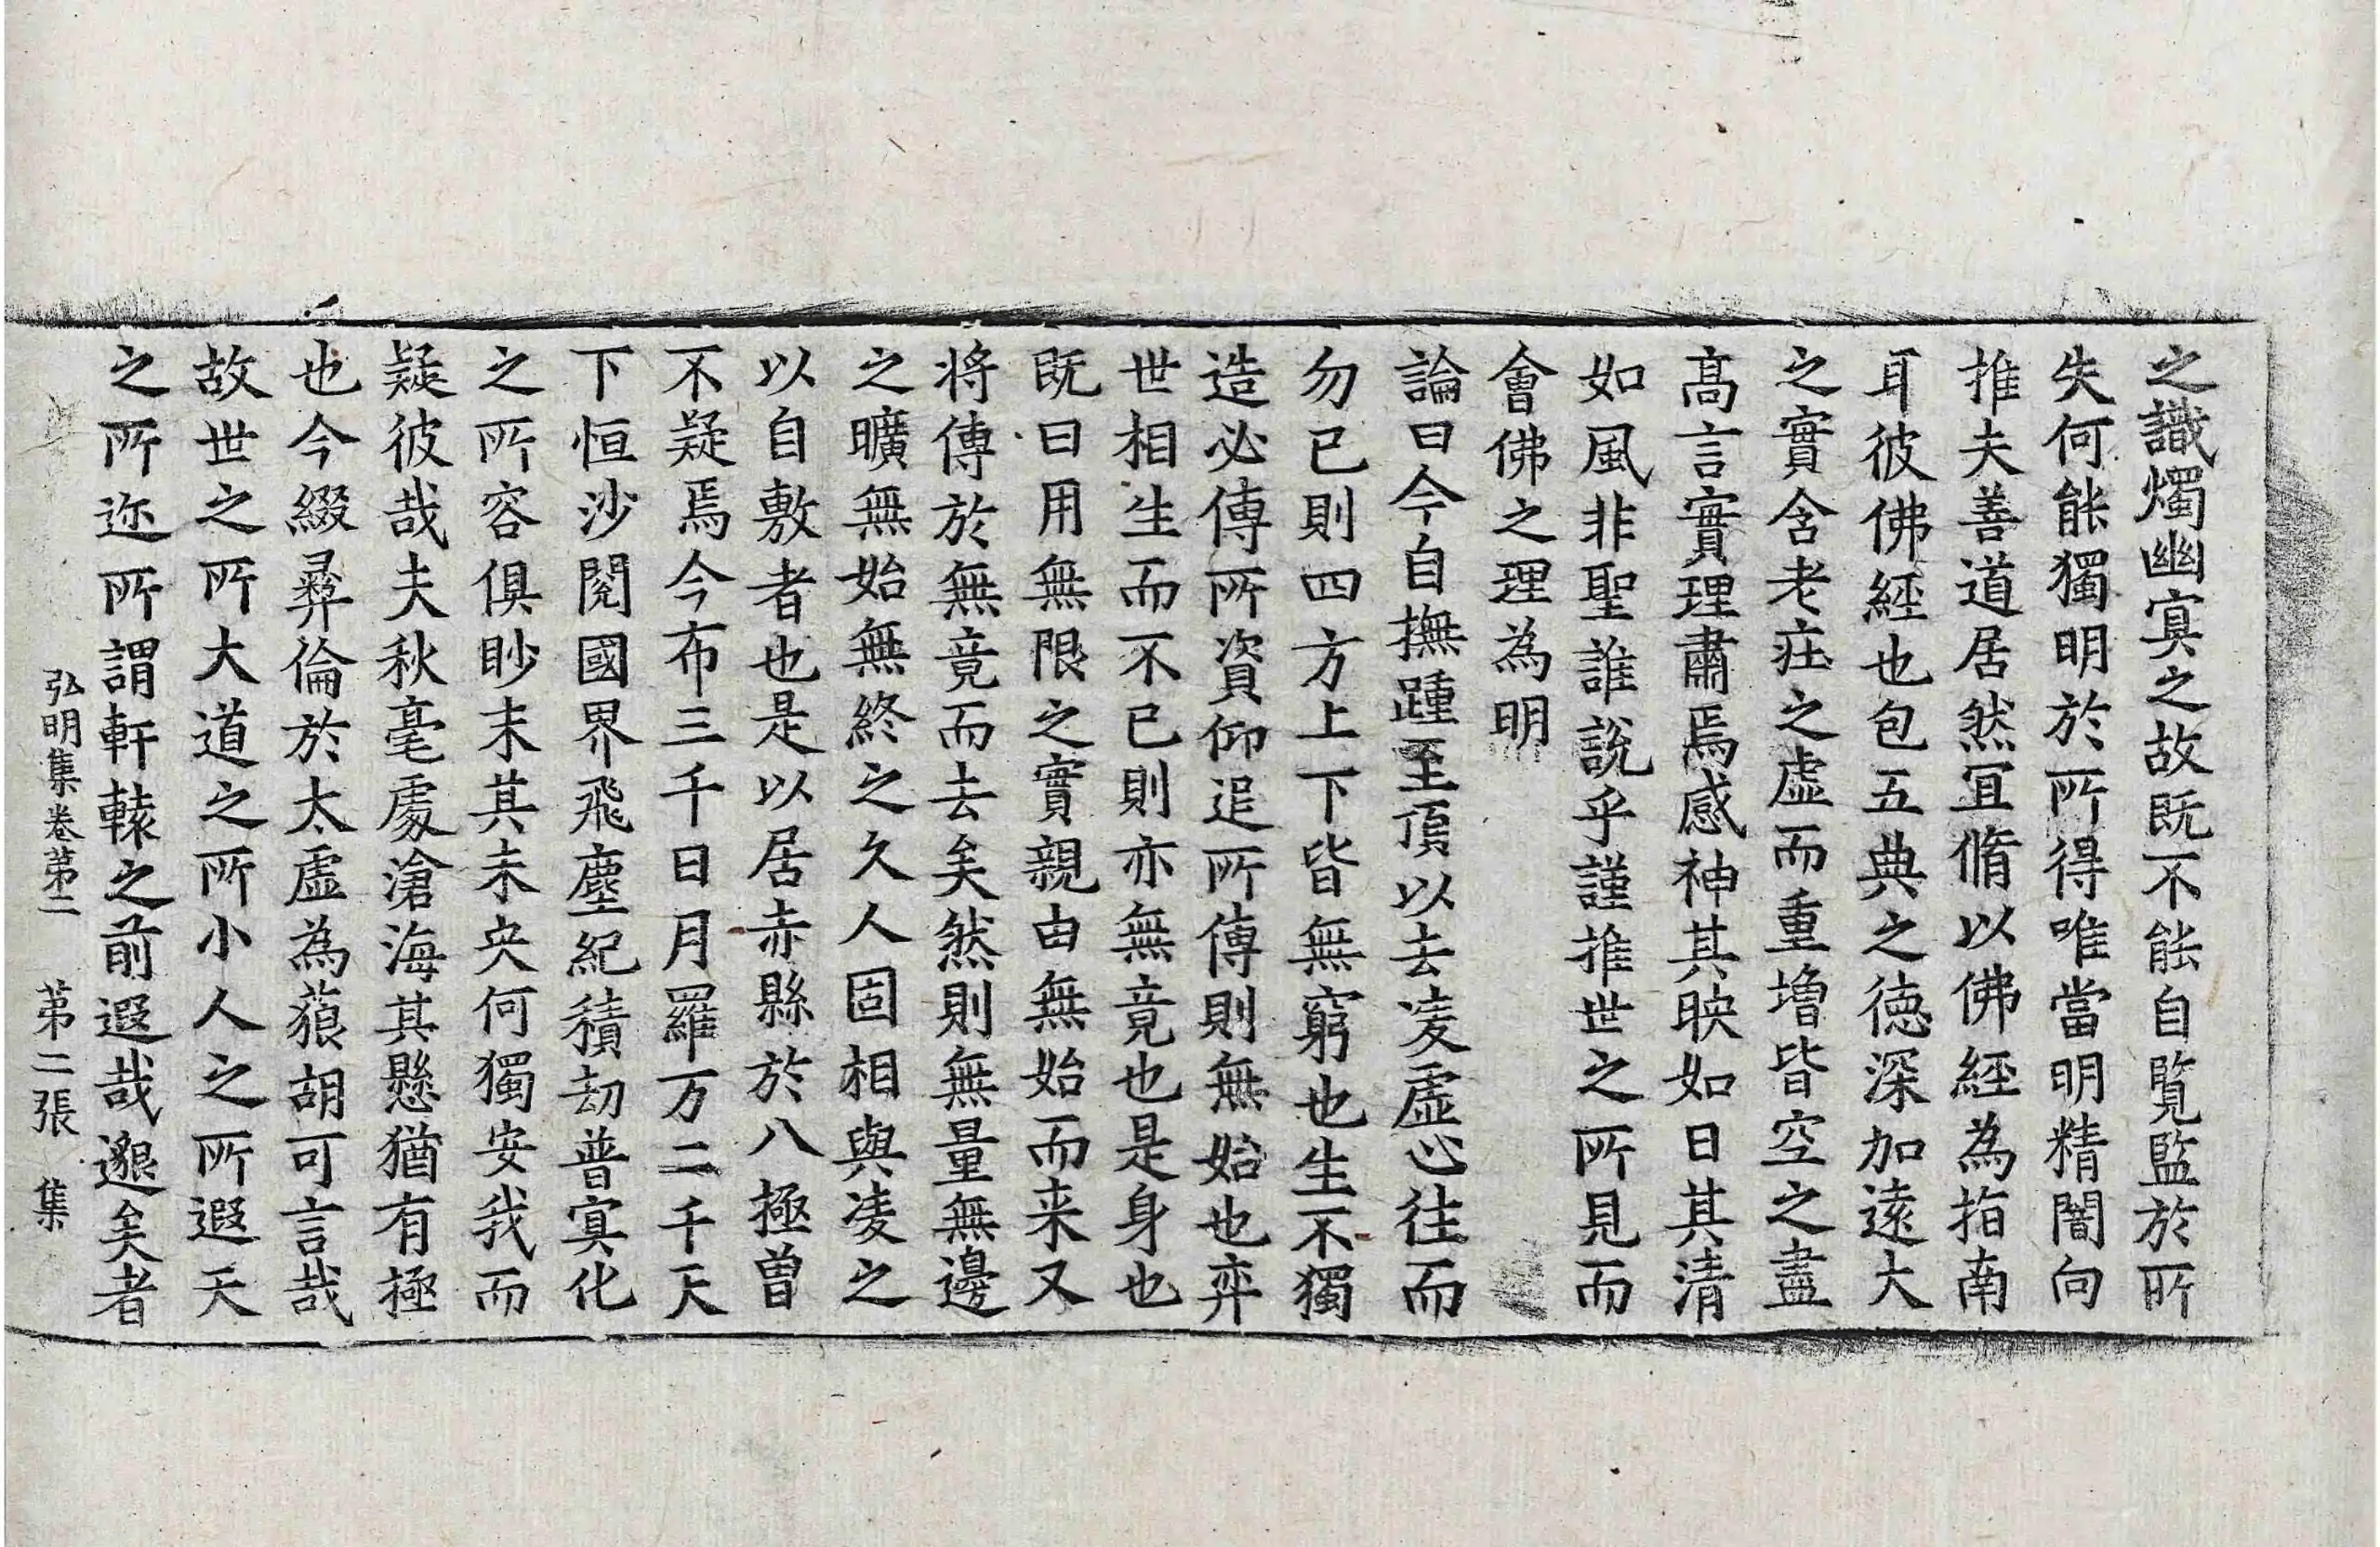 之識燭幽冥之故既不能自覽監於所
失何能獨明於所得唯當明精闇向
推夫善道居然冝脩以佛經為指南
耳彼佛經也包五典之德深加遠大
之實含老庄之虛而重增皆空之盡
髙言實理肅焉感神其映如日其清
如風非聖誰說乎謹推世之所見而
會佛之理為明
論曰今自撫踵至頂以去凌虛心往而
勿已則四方上下皆無窮也生不獨
造必傳所資仰追所傳則無始也弈
世相生而不已則亦無竟也是身也
既曰用無限之實親由無始而来又
将傳於無竟而去矣然則無量無邊
之曠無始無終之久人固相與凌之
以自敷者也是以居赤縣於八極曽
不疑焉今布三千日月羅万二千天
下恒沙閱國界飛塵紀積劫普冥化
之所容俱眇末其未央何獨安我而
疑彼哉夫秋毫處滄海其懸猶有極
也今綴彛倫於太虛為藐胡可言哉
故世之所大道之所小人之所遐天
之所迩所謂軒轅之前遐哉邈矣者
弘明集卷第二 第二張 集